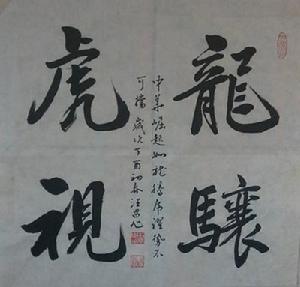 龍驤
虎視
中華崛起如龍騰虎躍勢不
可擋歲次丁酉初春汪召心